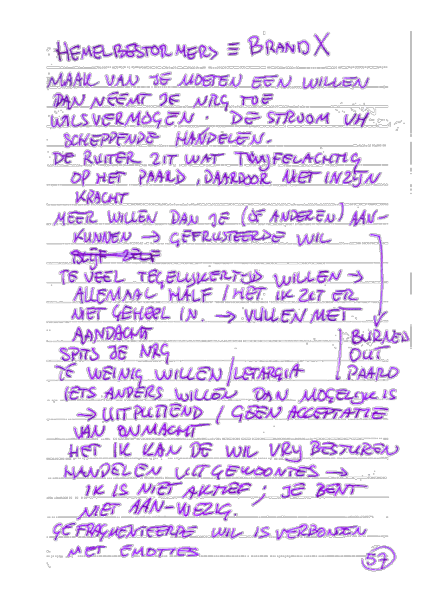 HEMELBESTORMERS ≡ BRAND X
MAAK VAN JE MOETEN EEN WILLEN
DAN NEEMT JE NRG TOE
WILSVERMOGEN. DE STROOM VH
SCHEPPENDE HANDELEN.
DE RUITER ZIT WAT TWIJFELACHTIG
OP HET PAARD, DAARDOOR NIET IN ZIJN
KRACHT
MEER WILLEN DAN JE (OF ANDEREN) AAN-
KUNNEN → GEFRUSTEERDE WIL
BLIJF ZELF
TE VEEL TEGELIJKERTIJD WILLEN →
ALLEMAAL HALF / HET IK ZIT ER
NIET GEHEEL IN. → VULLEN MET
AANDACHT
BURNED
SPITS JE NRG
OUT
TE WEINIG WILLEN / LETARGIA
PAARD
IETS ANDERS WILLEN DAN MOGELIJK IS
→ UITPUTTEND / GEEN ACCEPTATIE
VAN ONMACHT
HET IK KAN DE WIL VRIJ BESTUREN
HANDELEN UIT GEWOONTES →
IK IS NIET AKTIEF; JE BENT
NIET AAN-WEZIG.
GEFRAGMENTEERDE WIL IS VERBONDEN
MET EMOTIES
57